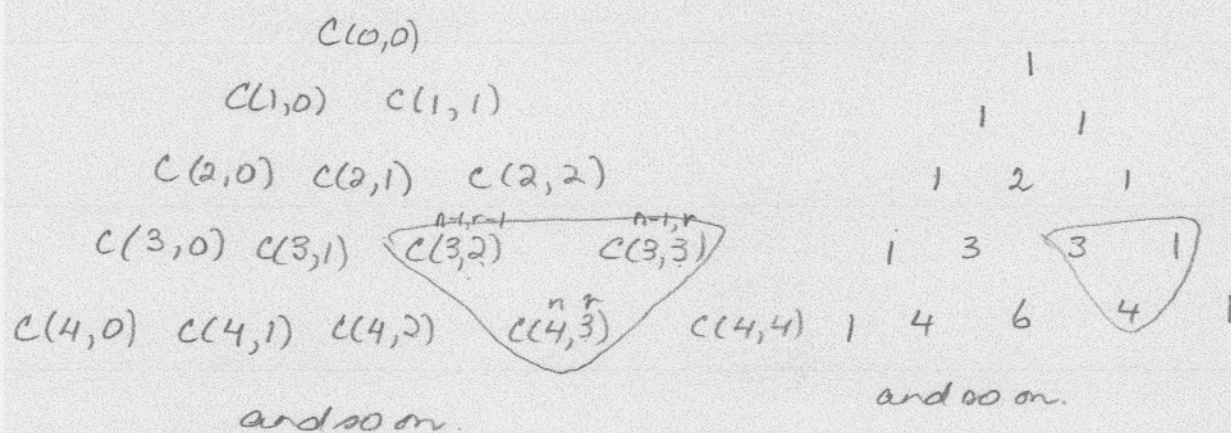 C(0,0)
C(1,0) C(1,1)
C(2,0) C(2,1) C(2,2)
n-1,r-1 n-1,r
C(3,0) C(3,1) C(3,2) C(3,3)
n r
C(4,0) C(4,1) C(4,2) C(4,3) C(4,4)
and so on.
1
1 1
1 2 1
1 3 3 1
1 4 6 4 1
and so on.